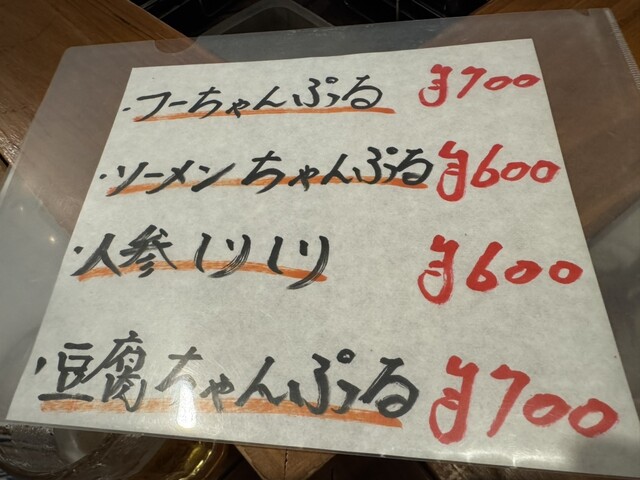 ・フーちゃんぷる ¥700
・ソーメンちゃんぷる ¥600
・人参しりしり ¥600
・豆腐ちゃんぷる ¥700